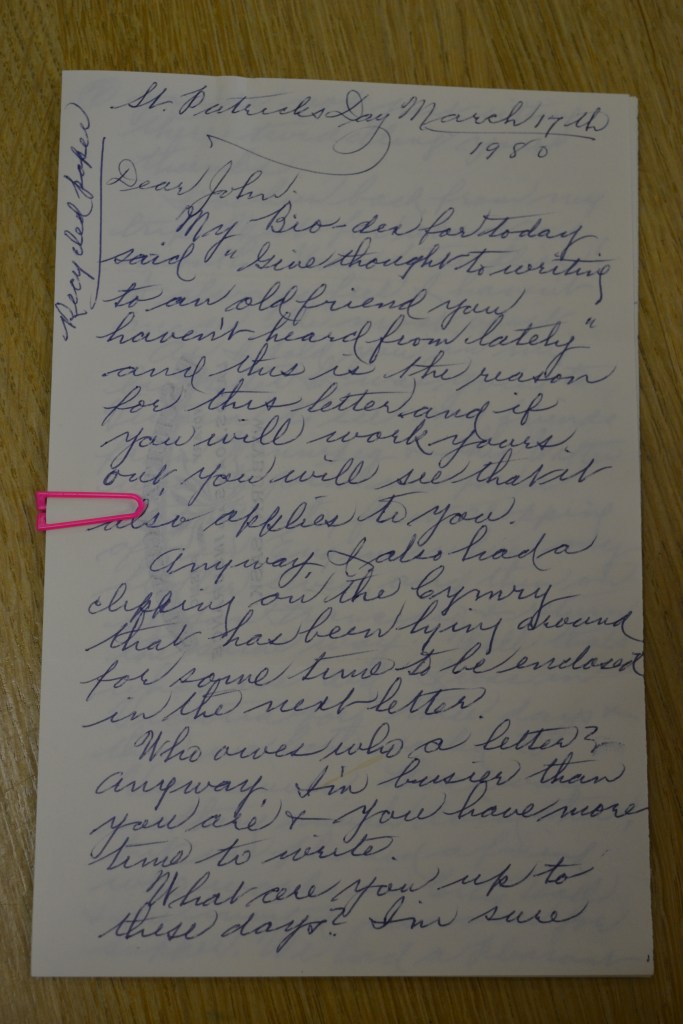 St. Patricks Day March 17th
1980
Recycled paper
Dear John.
My Bio-dex for today
said "Give thought to writing
to an old friend you
haven't heard from lately"
and this is the reason
for this letter and if
you will work yours.
out you will see that it
also applies to you.
Anyway, I also had a
clipping on the Cymry
that has been lying around
for some time to be enclosed
in the next letter.
Who owes who a letter?
Anyway I'm busier than
you are & you have more
time to write.
What are you up to
these days? I'm sure